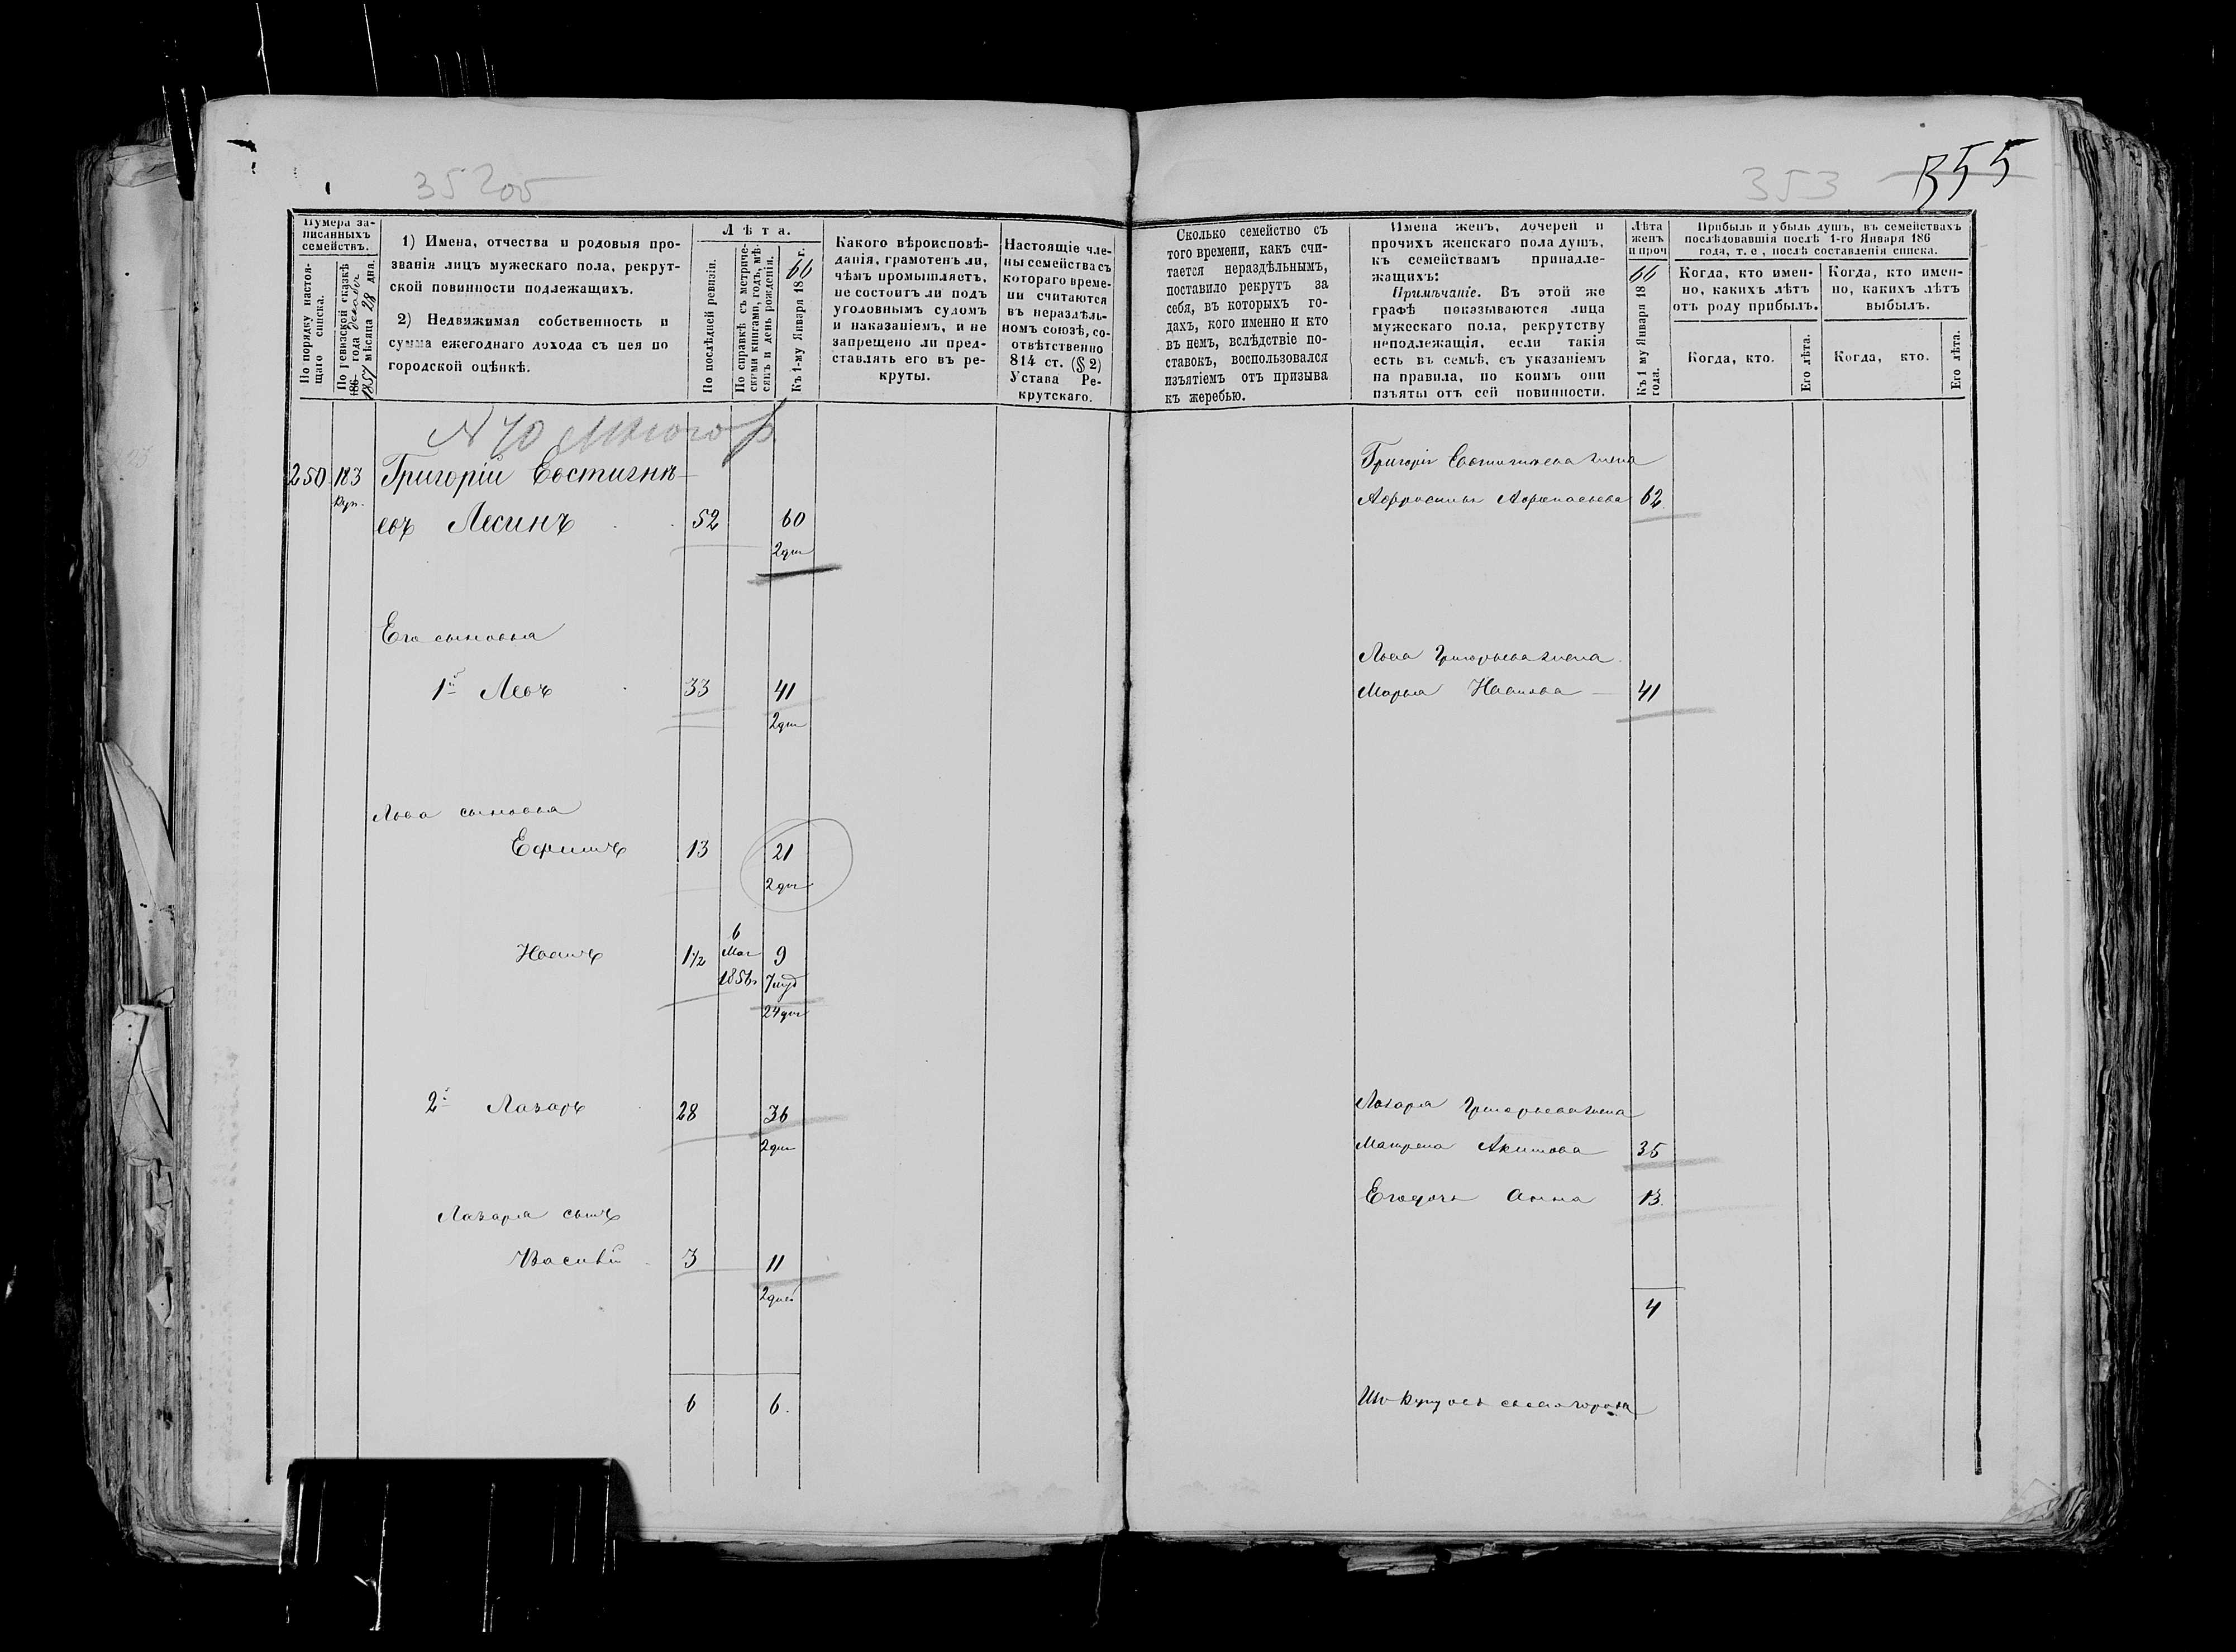 35205
Нумера за-
писанныхъ
семействъ.
По порядку настоя-
щаго списка.
По ревизской сказкѣ
186 года декабр.
1857 мѣсяца 28 дня.
1) Имена, отчества и родовыя про-
званія лицъ мужескаго пола, рекрут-
ской повинности подлежащихъ.
2) Недвижимая собственность и
сумма ежегоднаго дохода съ нея по
городской оцѣнкѣ.
Лѣта.
По послѣдней ревизіи.
По справкѣ съ метриче-
скими книгами, годъ, мѣ-
сяцъ и день рожденія.
Къ 1-му Января 1866 г.
Какого вѣроисповѣ-
данія, грамотенъ ли,
чѣмъ промышляетъ,
не состоитъ ли подъ
уголовнымъ судомъ
и наказаніемъ, и не
запрещено ли пред-
ставлять его въ ре-
круты.
Настоящіе чле-
ны семейства съ
котораго време-
ни считаются
въ нераздѣль-
номъ союзѣ, со-
отвѣтственно
814 ст. (§ 2)
Устава Ре-
крутскаго.
N 70
250 183 Григорій Евстигнѣ-
Куп.
евъ Лесинъ 52 60
2 дня
Его сыновья
1й Левъ 33 41
2 дня
Льва сыновья
Ефимъ 13 21
2 дня
6
1½ Мая 9
1856 7 мѣ
24 дня
2й Лазарь 28 36
2 дня
Лазаря сынъ
Василій 3 11
2 дней
6 6.
353 355
Сколько семейство съ
того времени, какъ счи-
тается нераздѣльнымъ,
поставило рекрутъ за
себя, въ которыхъ го-
дахъ, кого именно и кто
въ немъ, вслѣдствіе по-
ставокъ, воспользовался
изъятіемъ отъ призыва
къ жеребью.
Имена женъ, дочерей и
прочихъ женскаго пола душъ,
къ семействамъ принадле-
жащихъ:
Примѣчаніе. Въ этой же
графѣ показываются лица
мужескаго пола, рекрутству
неподлежащія, если такія
есть въ семьѣ, съ указаніемъ
на правила, по коимъ они
изъяты отъ сей повинности.
Лѣта
женъ
и проч
Къ 1 му Января 1866
года.
Прибыль и убыль душъ, въ семействахъ
послѣдовавшія послѣ 1-го Января 186
года, т. е , послѣ составленія списка.
Когда, кто имен-
но, какихъ лѣтъ
отъ роду прибылъ.
Когда, кто имен-
но, какихъ лѣтъ
выбылъ.
Когда, кто.
Его лѣта.
Когда, кто.
Его лѣта.
Григорія Евстигнѣева жена
Афросинья Афонасьева 62
Льва Григорьева жена
Марья 41
Лазаря Григорьева жена
Матрена Акимова 35
Его дочь Анна 13.
4